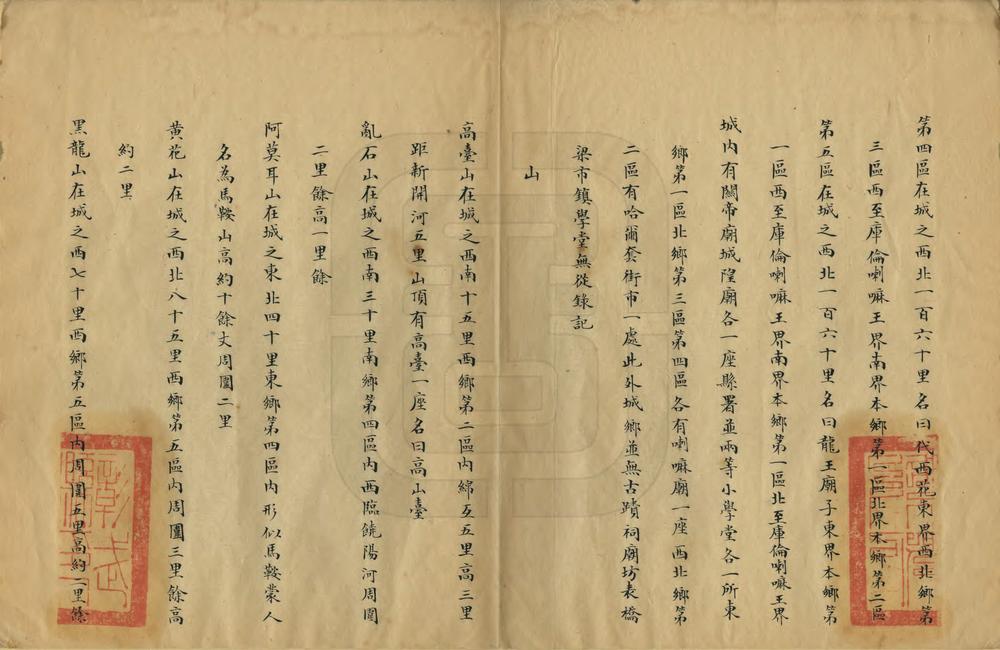 第四區在城之西北一百六十里名曰代西花東界西北鄉第
三區西至庫倫喇嘛王界南界本鄉第一區北界本鄉第二區
第五區在城之西北一百六十里名曰龍王廟子東界本鄉第
一區西至庫倫喇嘛王界南界本鄉第一區北至庫倫喇嘛王界
城内有關帝廟城隍廟各一座縣署並兩等小學堂各一所東
鄉第一區北鄉第三區第四區各有喇嘛廟一座西北鄉第
二區有哈爾套街市一處此外城鄉並無古蹟祠廟坊表橋
梁市鎮學堂無從錄記
山
高臺山在城之西南十五里西鄉第二區内綿亙五里高三里
距新開河五里山頂有高臺一座名曰高山臺
亂石山在城之西南三十里南鄉第四區内西臨饒陽河周圍
二里餘高一里餘
阿莫耳山在城之東北四十里東鄉第四區内形似馬鞍蒙人
名為馬鞍山高約十餘丈周圍二里
黃花山在城之西北八十五里西鄉第五區内周圍三里餘高
約二里
黑龍山在城之西七十里西鄉第五區内周圍五里高約二里餘